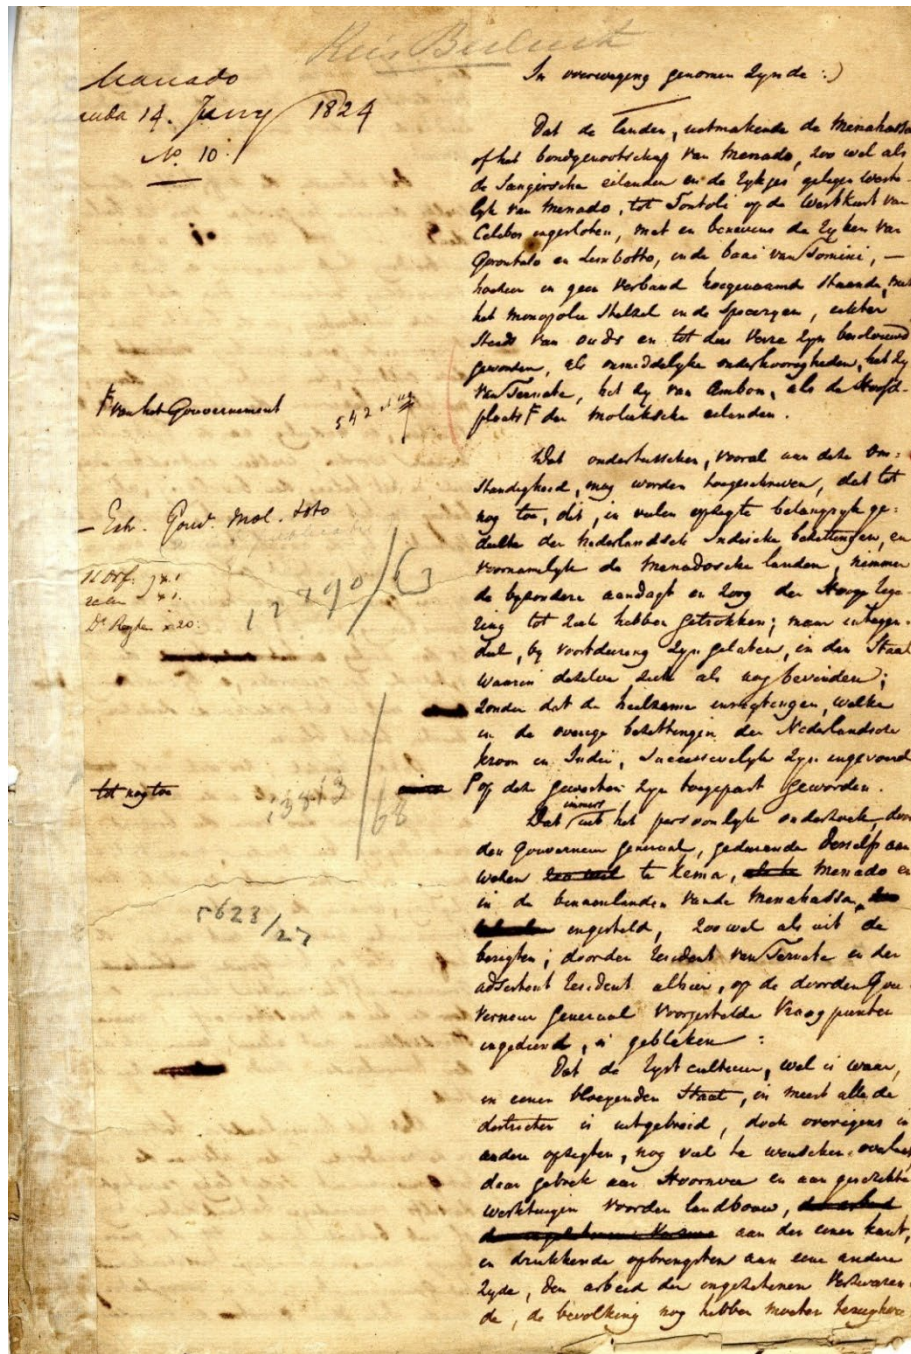 Reis Besluit
Manado
14. Juny 1824
No. 10.
In overweging genomen zynde :)
Dat de landen, uitmakende de Menahassa
of het bondgenootschap van Menado, zoo wel als
de Sangirsche eilanden en de rykjes gelegen weste-
lyk van Menado, tot Tontoli op de Westkust van
Celebes ingesloten, met en benevens de ryken van
Gorontalo en Limbotto, in de baai van Tomini, —
hoewel in geen verband hoegenaamd staande, met
het monopolie stelsel in de Speceryen, echter
steeds van ouds en tot dus verre zyn beschouwd
geworden, als onmiddelyke onderhoorigheden, het zy
van Ternate, het zy van Ambon, als de Hoofd-
plaats F der Moluksche eilanden.
F van het Gouvernement
Dat ondertusschen, vooral aan deze om-
standigheid, mag worden toegeschreven, dat tot
nog toe, dit, in velen opzigte belangryk ge-
deelte der Nederlandsch Indische bezittingen, en
voornamelyk de Menadosche landen, nimmer
de byzondere aandagt en zorg der Hooge Rege-
ring tot zich hebben getrokken; maar integen-
deel, by voortduring zyn gelaten, in den Staat
waarin dezelve zich als nog bevinden;
zonder dat de heilzame inrigtingen, welke
in de overige bezittingen der Nederlandsche
kroon in Indië, successivelyk zyn ingevoerd
op deze gewesten zyn toegepast geworden.
— Extr. Gouv. Mol. toto
12790/63
tot nog toe
13813/68
5623/27
Dat immers uit het persoonlyk onderzoek, door
den Gouverneur Generaal, gedurende Deszelfs aan-
wezen zoo wel te Kema, als te Menado en
in de binnenlanden van de Menahassa,
ingesteld, zoo wel als uit de
berigten, door den Resident van Ternate en den
adsistent Resident alhier, op de door den Gou-
verneur Generaal voorgestelde vraagpunten
ingediend, is gebleken :
Dat de ryst cultuur, wel is waar,
in eenen bloeyenden Staat, in meest alle de
districten is uitgebreid, doch overigens in
andere opzigten, nog veel te wenschen overlaat
daar gebrek aan Hoornvee en aan geschikte
werktuigen voor den landbouw,
aan den eenen kant,
en drukkende opbrengsten aan eene andere
zyde, den arbeid der ingezetenen verzwaren-
de, de bevolking nog hebben moeten terughou